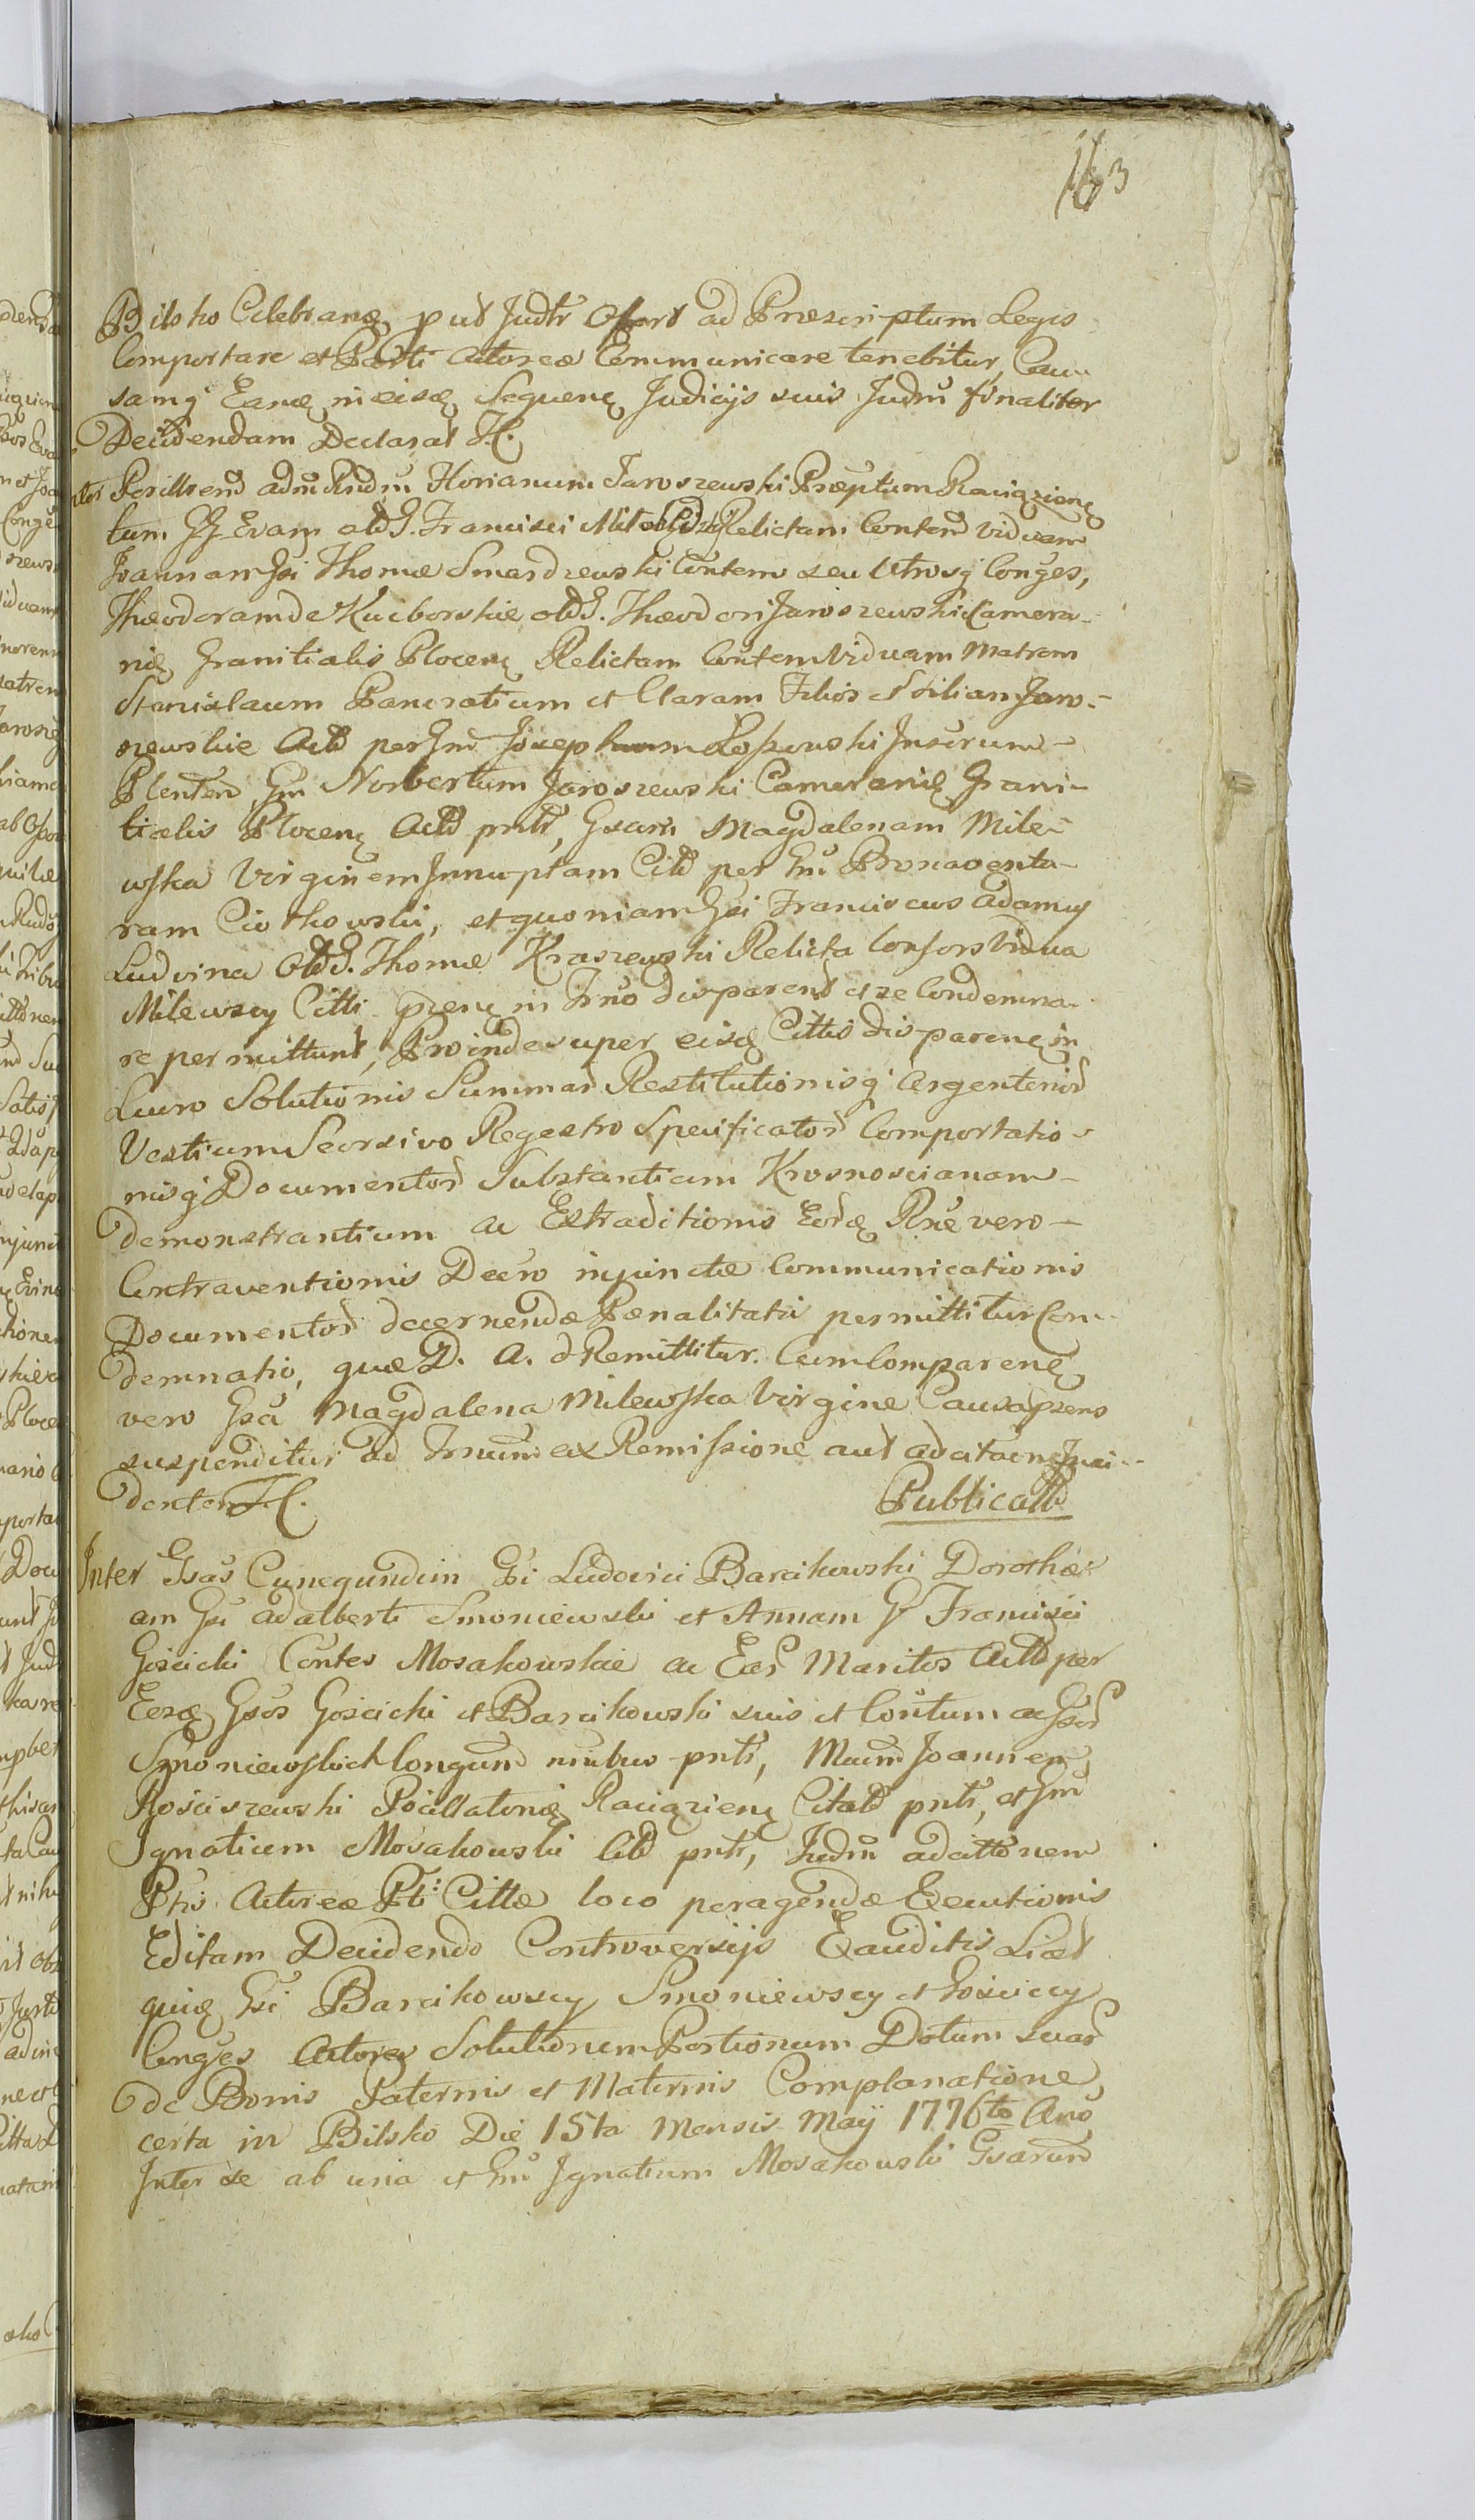 163
Bilsko Celebranę put Judtr ad Præscriptum Legis
Comportare et Parti Actoreæ Communicare tenebitur, Cau-
samq Eanę in eisę Sequenę Judicijs suis Judm finaliter
Decidendam Declarat H.
Perillrem admRndm Florianum Jaroszewski Præptum Raciązienę
tum GG Evam olG. Francisci Relictam Contem viduam
Joannam Gsi Thomæ Smardzewski Contem seu Utrosq Conges,
Theodoram de Kucborskie olG. Theodori Jaroszewski Camera-
rię Granitialis Plocenę Relictam Contem Viduam Matrem
Stanislaum Pancratium et Claram Filios et Filiam Jaro-
szewskie Actt per Gm Josephum Inscrum-
Plentem, Gm Norbertum Jaroszewski Camerarię Grani-
tialis Plocenę Actt pntr, Gsam Magdalenam Mile-
wska Virginem Innuptam Citt per Gm Bonaventu-
ram Ciotkowski, et quoniam Gsi Franciscus Adamus
Ludvina OlG. Thomæ Kraszewski Relicta Consors Vidua
Milewscy Citti in Trno disparent et se Condemna-
re permittunt, Proinde super eisę Cittis disparenę in
Lucro Solutionis Summar Restitutionisq Argenterior
Vestium Seorsivo Regestro Specificator Comportatio-
nisq Documentor Substantiam Krosnoscianam
demonstrantium ac Extraditionis Eordę Rne vero
Contraventionis Decro injunctæ Communicationis
Documentor decernendæ Pœnalitatis permittitur Con-
demnatio, quæ D. A. d Remittitur. Cum Comparenę
vero Gsa Magdalena Milewska Virgine Causa pręsens
suspenditur ad Trnum ex Remissione aut adcitaenę Inci-
dentem H. Publicatt
Inter Gsas Cunegundim Gsi Ludovici Barcikowski Dorothæ-
am Gsi Adalberti Smoniewski et Annam G Francisci
Gościcki Contes Mosakowskie ac Ear Maritos Actt per
Eosę Gsos Gościcki et Barcikowski suis et Contum ac Gsor
Smoniewskich Congum nnibus pntr, Mcum Joannem
Rościszewski Pocillatorię Raciązienę Citatt pntr, et Gm
Ignatium Mosakowski Citt pntr, Judm ad cittonem
Ptis Actoreæ Pti Cittæ loco peragendæ Executionis
Editam Decidendo Controversijs Exauditis Licet
quię Gsi Barcikowscy Smoniewscy et Gościccy
Conges Actores Solutionem Portionum Dotum suar
de Bonis Paternis et Maternis Complanatione
certa in Bilsko Die 15ta Mensis Maÿ 1776to Ano
Inter se ab una et Gm Ignatium Mosakowski Gsarum